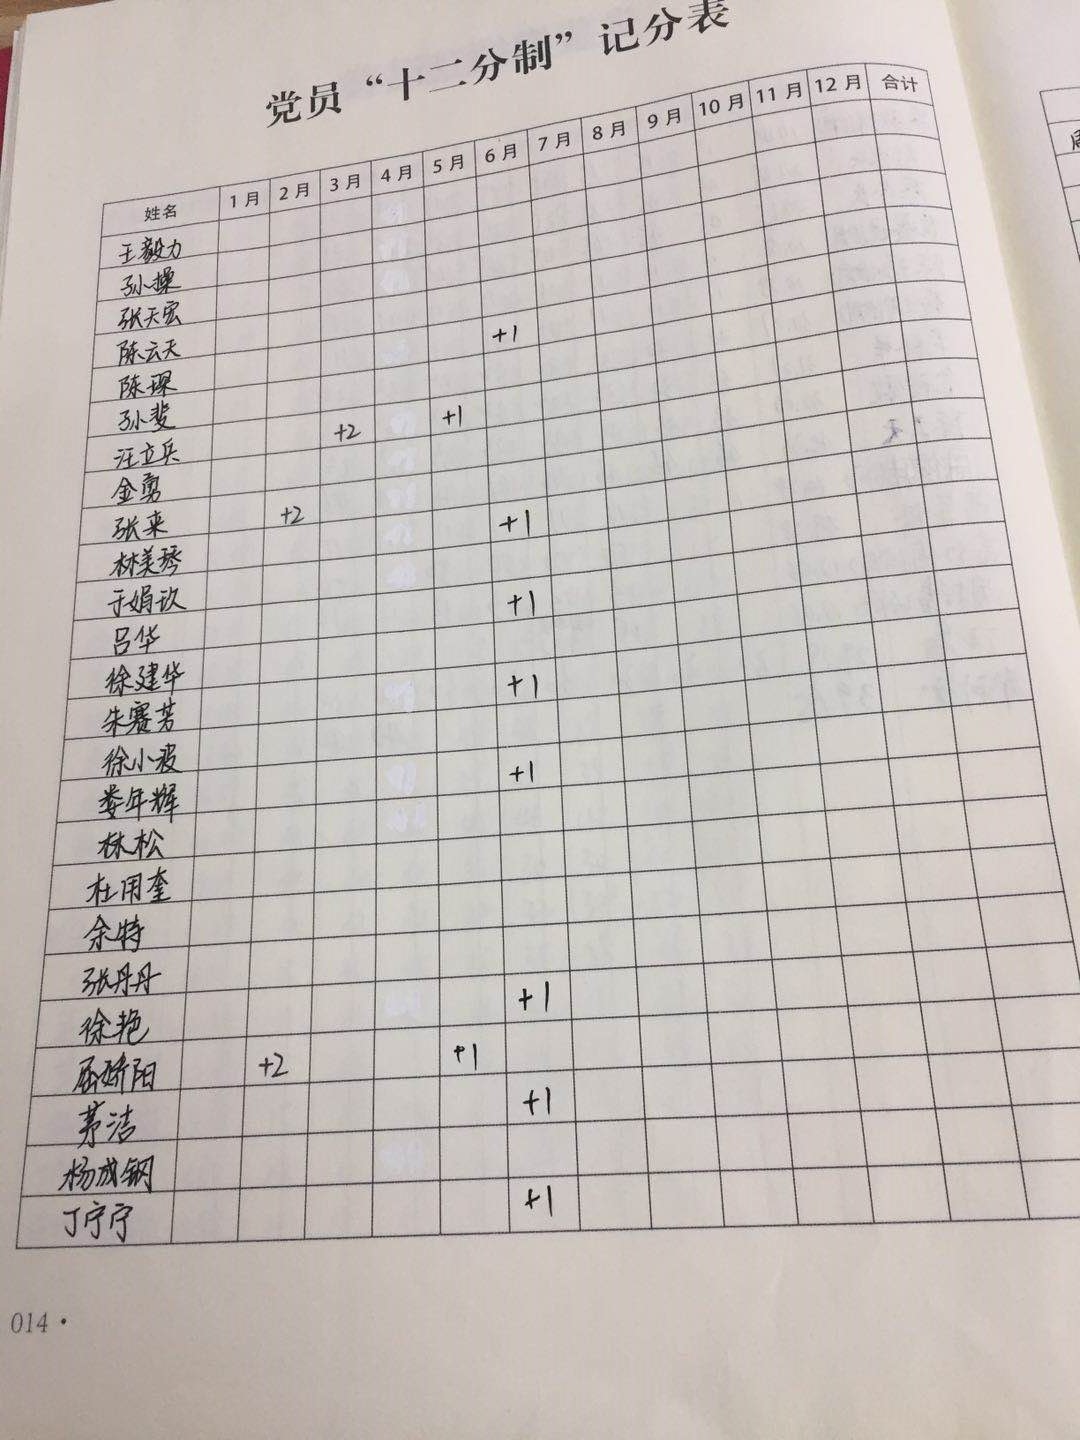 党员“十二分制”记分表
姓名 1月 2月 3月 4月 5月 6月 7月 8月 9月 10月 11月 12月 合计
王毅力
孙操
张天宏
陈云天
陈琛 +1
孙斐
汪立兵 +2 +1
金勇
张来 +2
林美琴 +1
于娟玫
吕华 +1
徐建华
朱赛芳 +1
徐小波
娄年辉 +1
林松
杜用奎
余特
张丹丹
徐艳 +1
屈娇阳 +2 +1
茅洁 +1
杨成钢
丁宁宁 +1
014·